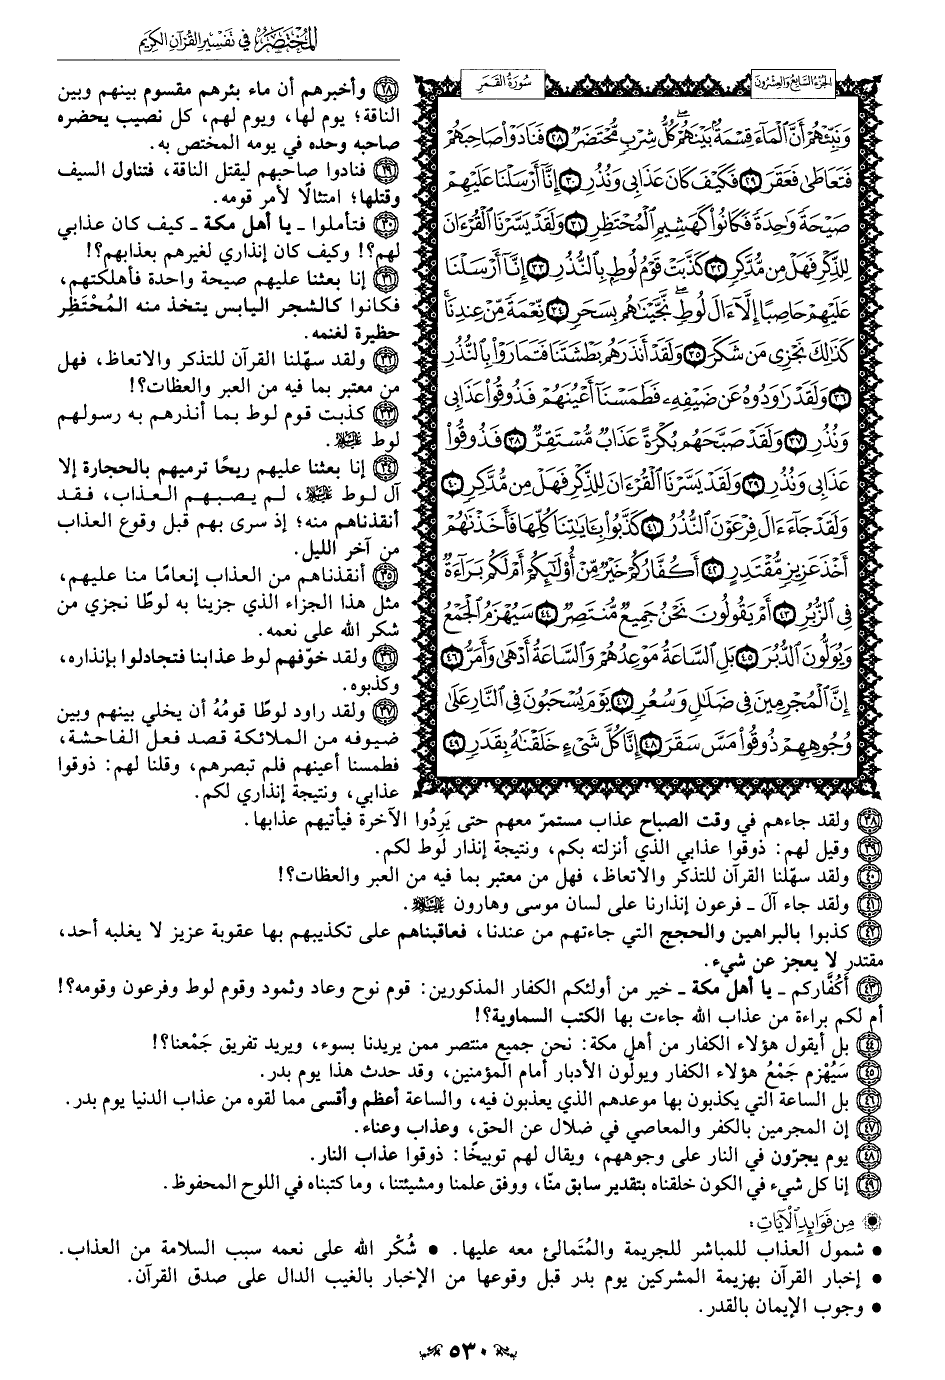 المختصر في تفسير القرآن الكريم
الجزء السابع والعشرون
سورة القمر
وَنَبِّئْهُمْ أَنَّ ٱلْمَآءَ قِسْمَةٌۢ بَيْنَهُمْ ۖ كُلُّ شِرْبٍ مُّحْتَضَرٌ ٢٨ فَنَادَوْا۟ صَاحِبَهُمْ
فَتَعَاطَىٰ فَعَقَرَ ٢٩ فَكَيْفَ كَانَ عَذَابِى وَنُذُرِ ٣٠ إِنَّآ أَرْسَلْنَا عَلَيْهِمْ
صَيْحَةً وَٰحِدَةً فَكَانُوا۟ كَهَشِيمِ ٱلْمُحْتَظِرِ ٣١ وَلَقَدْ يَسَّرْنَا ٱلْقُرْءَانَ
لِلذِّكْرِ فَهَلْ مِن مُّدَّكِرٍ ٣٢ كَذَّبَتْ قَوْمُ لُوطٍۭ بِٱلنُّذُرِ ٣٣ إِنَّآ أَرْسَلْنَا
عَلَيْهِمْ حَاصِبًا إِلَّآ ءَالَ لُوطٍ ۖ نَّجَّيْنَٰهُم بِسَحَرٍ ٣٤ نِّعْمَةً مِّنْ عِندِنَا ۚ
كَذَٰلِكَ نَجْزِى مَن شَكَرَ ٣٥ وَلَقَدْ أَنذَرَهُم بَطْشَتَنَا فَتَمَارَوْا۟ بِٱلنُّذُرِ
٣٦ وَلَقَدْ رَٰوَدُوهُ عَن ضَيْفِهِۦ فَطَمَسْنَآ أَعْيُنَهُمْ فَذُوقُوا۟ عَذَابِى
وَنُذُرِ ٣٧ وَلَقَدْ صَبَّحَهُم بُكْرَةً عَذَابٌ مُّسْتَقِرٌّ ٣٨ فَذُوقُوا۟
عَذَابِى وَنُذُرِ ٣٩ وَلَقَدْ يَسَّرْنَا ٱلْقُرْءَانَ لِلذِّكْرِ فَهَلْ مِن مُّدَّكِرٍ ٤٠
وَلَقَدْ جَآءَ ءَالَ فِرْعَوْنَ ٱلنُّذُرُ ٤١ كَذَّبُوا۟ بِـَٔايَٰتِنَا كُلِّهَا فَأَخَذْنَٰهُمْ
أَخْذَ عَزِيزٍ مُّقْتَدِرٍ ٤٢ أَكُفَّارُكُمْ خَيْرٌ مِّنْ أُو۟لَٰٓئِكُمْ أَمْ لَكُم بَرَآءَةٌ
فِى ٱلزُّبُرِ ٤٣ أَمْ يَقُولُونَ نَحْنُ جَمِيعٌ مُّنتَصِرٌ ٤٤ سَيُهْزَمُ ٱلْجَمْعُ
وَيُوَلُّونَ ٱلدُّبُرَ ٤٥ بَلِ ٱلسَّاعَةُ مَوْعِدُهُمْ وَٱلسَّاعَةُ أَدْهَىٰ وَأَمَرُّ ٤٦
إِنَّ ٱلْمُجْرِمِينَ فِى ضَلَٰلٍ وَسُعُرٍ ٤٧ يَوْمَ يُسْحَبُونَ فِى ٱلنَّارِ عَلَىٰ
وُجُوهِهِمْ ذُوقُوا۟ مَسَّ سَقَرَ ٤٨ إِنَّا كُلَّ شَىْءٍ خَلَقْنَٰهُ بِقَدَرٍ ٤٩
٢٨ وأخبرهم أن ماء بئرهم مقسوم بينهم وبين
الناقة؛ يوم لها، ويوم لهم، كل نصيب يحضره
صاحبه وحده في يومه المختص به.
٢٩ فنادوا صاحبهم ليقتل الناقة، فتناول السيف
وقتلها؛ امتثالًا لأمر قومه.
٣٠ فتأملوا ـ يا أهل مكة ـ كيف كان عذابي
لهم؟! وكيف كان إنذاري لغيرهم بعذابهم؟!
٣١ إنا بعثنا عليهم صيحة واحدة فأهلكتهم،
فكانوا كالشجر اليابس يتخذ منه المُحْتَظِر
حظيرة لغنمه.
٣٢ ولقد سهّلنا القرآن للتذكر والاتعاظ، فهل
من معتبر بما فيه من العبر والعظات؟!
٣٣ كذبت قوم لوط بما أنذرهم به رسولهم
لوط عليه السلام.
٣٤ إنا بعثنا عليهم ريحًا ترميهم بالحجارة إلا
آل لوط عليه السلام، لم يصبهم العذاب، فقد
أنقذناهم منه؛ إذ سرى بهم قبل وقوع العذاب
من آخر الليل.
٣٥ أنقذناهم من العذاب إنعامًا منا عليهم،
مثل هذا الجزاء الذي جزينا به لوطًا نجزي من
شكر الله على نعمه.
٣٦ ولقد خوّفهم لوط عذابنا فتجادلوا بإنذاره،
وكذبوه.
٣٧ ولقد راود لوطًا قومُهُ أن يخلي بينهم وبين
ضيوفه من الملائكة قصد فعل الفاحشة،
فطمسنا أعينهم فلم تبصرهم، وقلنا لهم: ذوقوا
عذابي، ونتيجة إنذاري لكم.
٣٨ ولقد جاءهم في وقت الصباح عذاب مستمرّ معهم حتى يَرِدُوا الآخرة فيأتيهم عذابها.
٣٩ وقيل لهم: ذوقوا عذابي الذي أنزلته بكم، ونتيجة إنذار لوط لكم.
٤٠ ولقد سهّلنا القرآن للتذكر والاتعاظ، فهل من معتبر بما فيه من العبر والعظات؟!
٤١ ولقد جاء آلَ ـ فرعون إنذارنا على لسان موسى وهارون عليهما السلام.
٤٢ كذبوا بالبراهين والحجج التي جاءتهم من عندنا، فعاقبناهم على تكذيبهم بها عقوبة عزيز لا يغلبه أحد،
مقتدر لا يعجز عن شيء.
٤٣ أَكُفَّاركم ـ يا أهل مكة ـ خير من أولئكم الكفار المذكورين: قوم نوح وعاد وثمود وقوم لوط وفرعون وقومه؟!
أم لكم براءة من عذاب الله جاءت بها الكتب السماوية؟!
٤٤ بل أيقول هؤلاء الكفار من أهل مكة: نحن جميع منتصر ممن يريدنا بسوء، ويريد تفريق جَمْعنا؟!
٤٥ سَيُهْزم جَمْعُ هؤلاء الكفار ويولّون الأدبار أمام المؤمنين، وقد حدث هذا يوم بدر.
٤٦ بل الساعة التي يكذبون بها موعدهم الذي يعذبون فيه، والساعة أعظم وأقسى مما لقوه من عذاب الدنيا يوم بدر.
٤٧ إن المجرمين بالكفر والمعاصي في ضلال عن الحق، وعذاب وعناء.
٤٨ يوم يجرّون في النار على وجوههم، ويقال لهم توبيخًا: ذوقوا عذاب النار.
٤٩ إنا كل شيء في الكون خلقناه بتقدير سابق منّا، ووفق علمنا ومشيئتنا، وما كتبناه في اللوح المحفوظ.
من فوائد الآيات:
• شمول العذاب للمباشر للجريمة والمُتَمالئ معه عليها. • شُكْر الله على نعمه سبب السلامة من العذاب.
• إخبار القرآن بهزيمة المشركين يوم بدر قبل وقوعها من الإخبار بالغيب الدال على صدق القرآن.
• وجوب الإيمان بالقدر.
٥٣٠